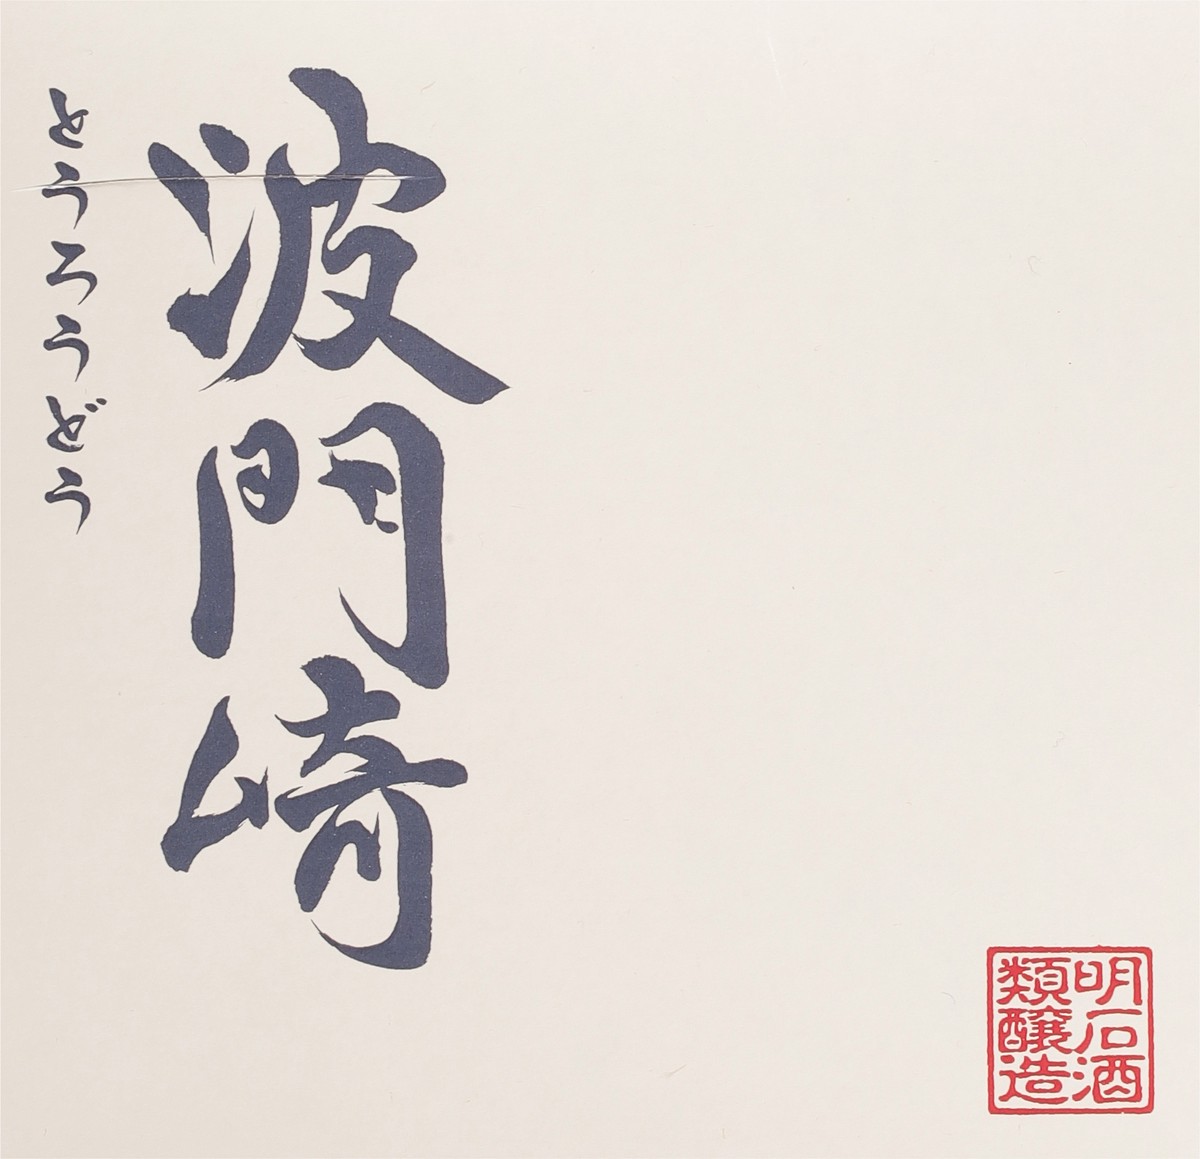 波門崎
とうろうどう
明石酒
類醸造